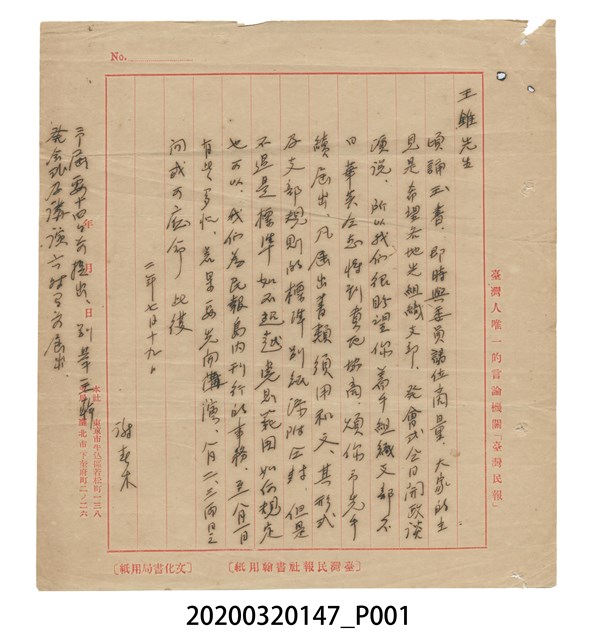 No.
臺灣人唯一的言論機關「臺灣民報」
王雖先生
頃誦玉書、即時與委員諸位商量、大家的主
見是希望各地先組織支部、發會式全日開政談
演說、所以我們很盼望你着手組織支部、不
日華英同志得到貴地協商、煩你可先手
續屆出、凡屆出書類須用和文、其形式
及支部規則的標準別紙添附在封、但是
不過是標準、如不超越憲則範圍如何規定
也可以、我們為民報島內刊行的事務、至八月一日
有些多忙、若果要先開講演、八月二、三兩日
問或可應命 此復
二年七月十九日
謝春木
年 月 日
本社 東京市牛込區若松町一三八
臺北市下奎府町二ノ二六
發會式及講演六時間前屆出
〔臺灣民報社書翰用紙〕
〔文化書局用紙〕
20200320147_P001